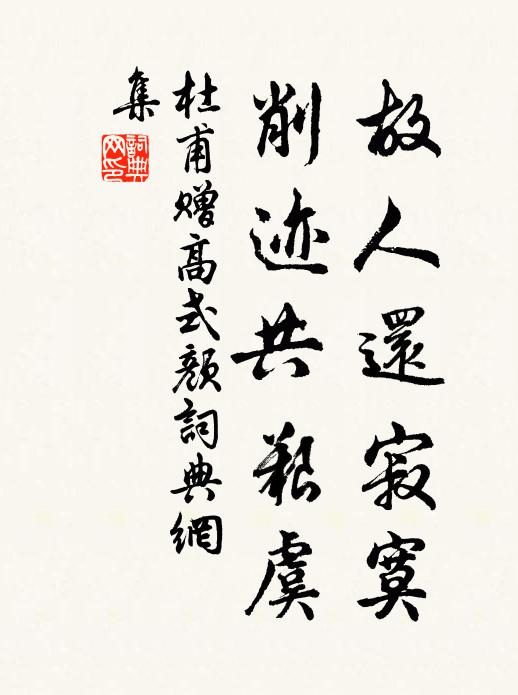 故人還寂寞
削迹共艱虞
杜甫贈高式顏詞典網
集
詞典网印